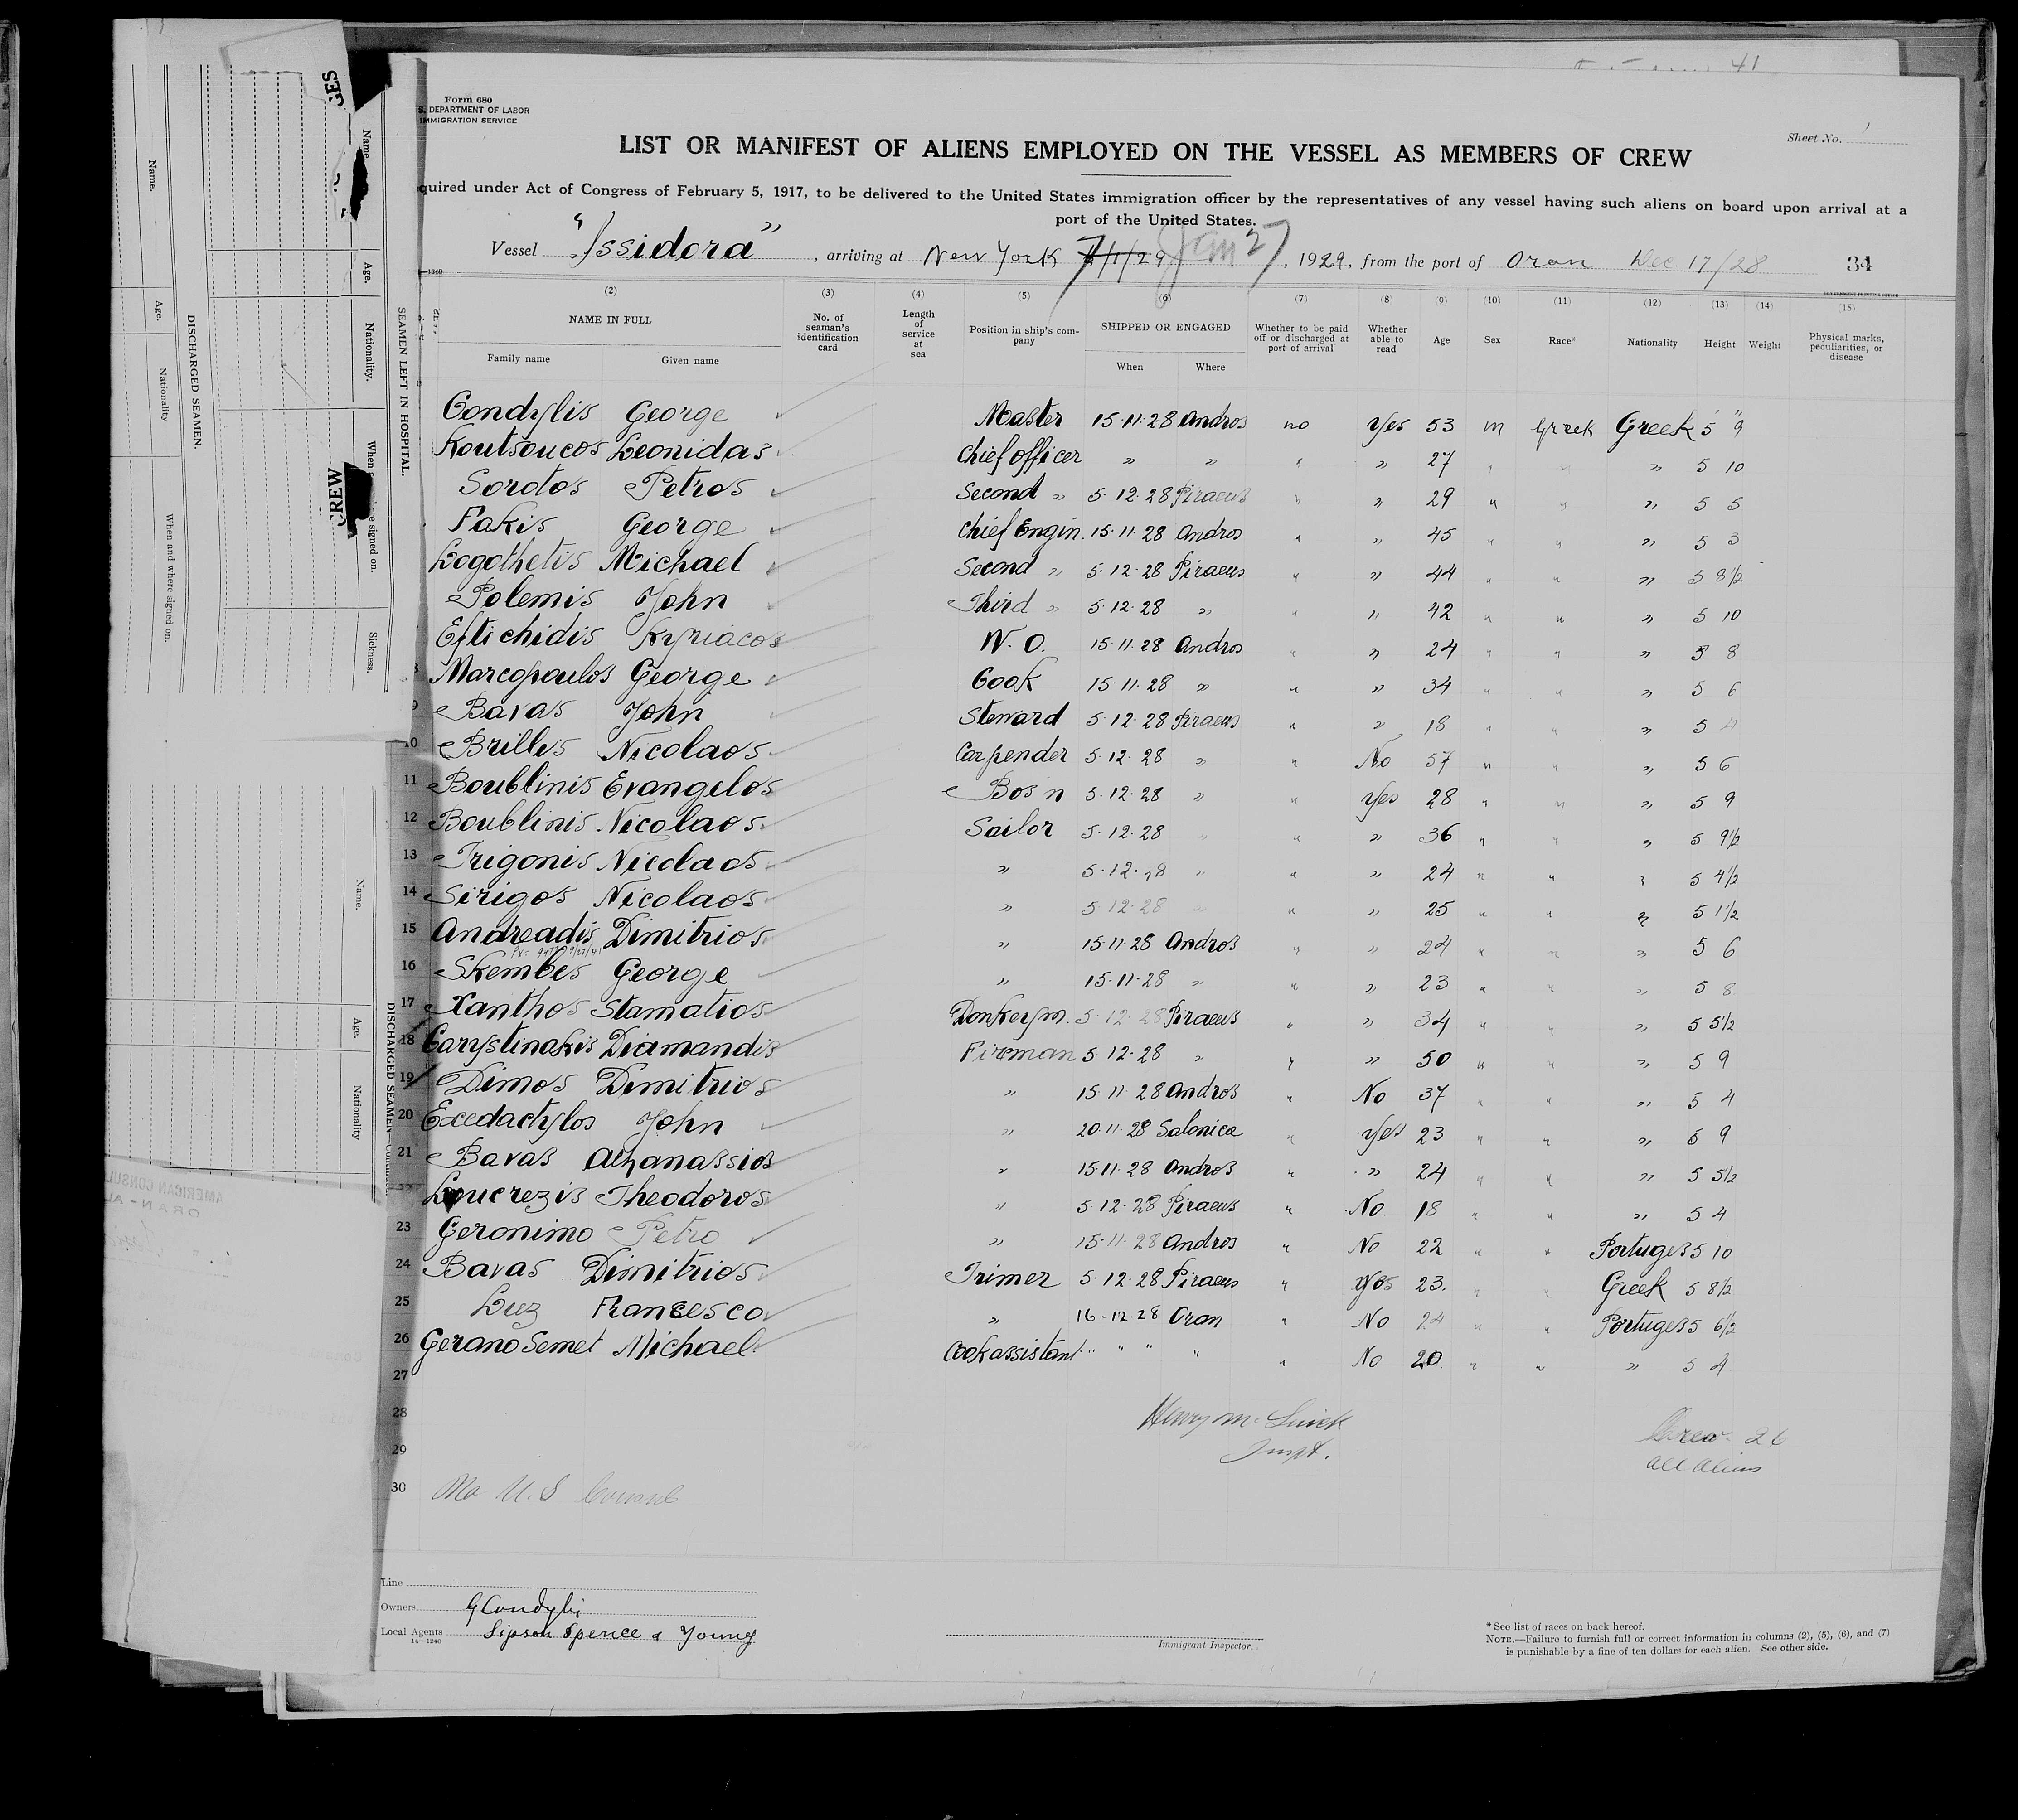 Form 680
S. DEPARTMENT OF LABOR
IMMIGRATION SERVICE
Sheet No. 1
LIST OR MANIFEST OF ALIENS EMPLOYED ON THE VESSEL AS MEMBERS OF CREW
quired under Act of Congress of February 5, 1917, to be delivered to the United States immigration officer by the representatives of any vessel having such aliens on board upon arrival at a
port of the United States.
Vessel "Issidora", arriving at New York Jan 27, 1929, from the port of Oran Dec 17/28 34
(2) (3) (4) (5) (6) (7) (8) (9) (10) (11) (12) (13) (14) (15)
NAME IN FULL No. of seaman's identification card Length of service at sea Position in ship's company SHIPPED OR ENGAGED Whether to be paid off or discharged at port of arrival Whether able to read Age Sex Race* Nationality Height Weight Physical marks, peculiarities, or disease
Family name Given name When Where
Condylis George Master 15·11·28 Andros no Yes 53 m Greek Greek 5' 9"
Koutsoucos Leonidas Chief officer " " " " 27 " " " 5 10
Sordos Petros Second " 5·12·28 Piraeus " " 29 " " " 5 5
Fakis George Chief Engin. 15·11·28 Andros " " 45 " " " 5 3
Logothetis Michael Second " 5·12·28 Piraeus " " 44 " " " 5 8½
Polemis John Third " 5·12·28 " " " 42 " " " 5 10
Eftichidis Kyriacos W. O. 15·11·28 Andros " " 24 " " " 5 8
8 Marcopoulos George Cook 15·11·28 " " " 34 " " " 5 6
9 Bavas John Steward 5·12·28 Piraeus " " 18 " " " 5 4
10 Brillis Nicolaos Carpender 5·12·28 " " No 57 " " " 5 6
11 Boublinis Evangelos Bosn 5·12·28 " " Yes 28 " " " 5 9
12 Boublinis Nicolaos Sailor 5·12·28 " " " 36 " " " 5 9½
13 Trigonis Nicolaos " 5·12·28 " " " 24 " " " 5 4½
14 Sirigos Nicolaos " 5·12·28 " " " 25 " " " 5 1½
15 Andreadis Dimitrios " 15·11·28 Andros " " 24 " " " 5 6
16 Skembes George " 15·11·28 " " " 23 " " " 5 8
17 Xanthos Stamatios Donkeym. 5·12·28 Piraeus " " 34 " " " 5 5½
18 Carystinakis Diamandis Fireman 5·12·28 " " " 50 " " " 5 9
19 Dimos Dimitrios " 15·11·28 Andros " No 37 " " " 5 4
20 Exedactylos John " 20·11·28 Salonica " Yes 23 " " " 5 9
21 Bavas Athanassios " 15·11·28 Andros " " 24 " " " 5 5½
22 Loucrezis Theodoros " 5·12·28 Piraeus " No 18 " " " 5 4
23 Geronimo Petro " 15·11·28 Andros " No 22 " " Portuges 5 10
24 Bavas Dimitrios Trimer 5·12·28 Piraeus " Yes 23 " " Greek 5 8½
25 Luz Francesco " 16-12-28 Oran " No 24 " " Portuges 5 6½
26 Gerano Semet Michael Cook assistant " " " " " No 20 " " " 5 4
27
28
29
30
Inspt.
Crew 26
all aliens
No U.S Consul
Line
Owners G Condylis
Local Agents Sipson Spence & Young
14—1240
Immigrant Inspector.
* See list of races on back hereof.
NOTE.—Failure to furnish full or correct information in columns (2), (5), (6), and (7)
is punishable by a fine of ten dollars for each alien. See other side.
SEAMEN LEFT IN HOSPITAL.
Name. Age. Nationality. When signed on. Sickness.
DISCHARGED SEAMEN.
Name. Age. Nationality When and where signed on.
DISCHARGED SEAMEN—Continued.
Name. Age. Nationality
CREW
AMERICAN CONSUL